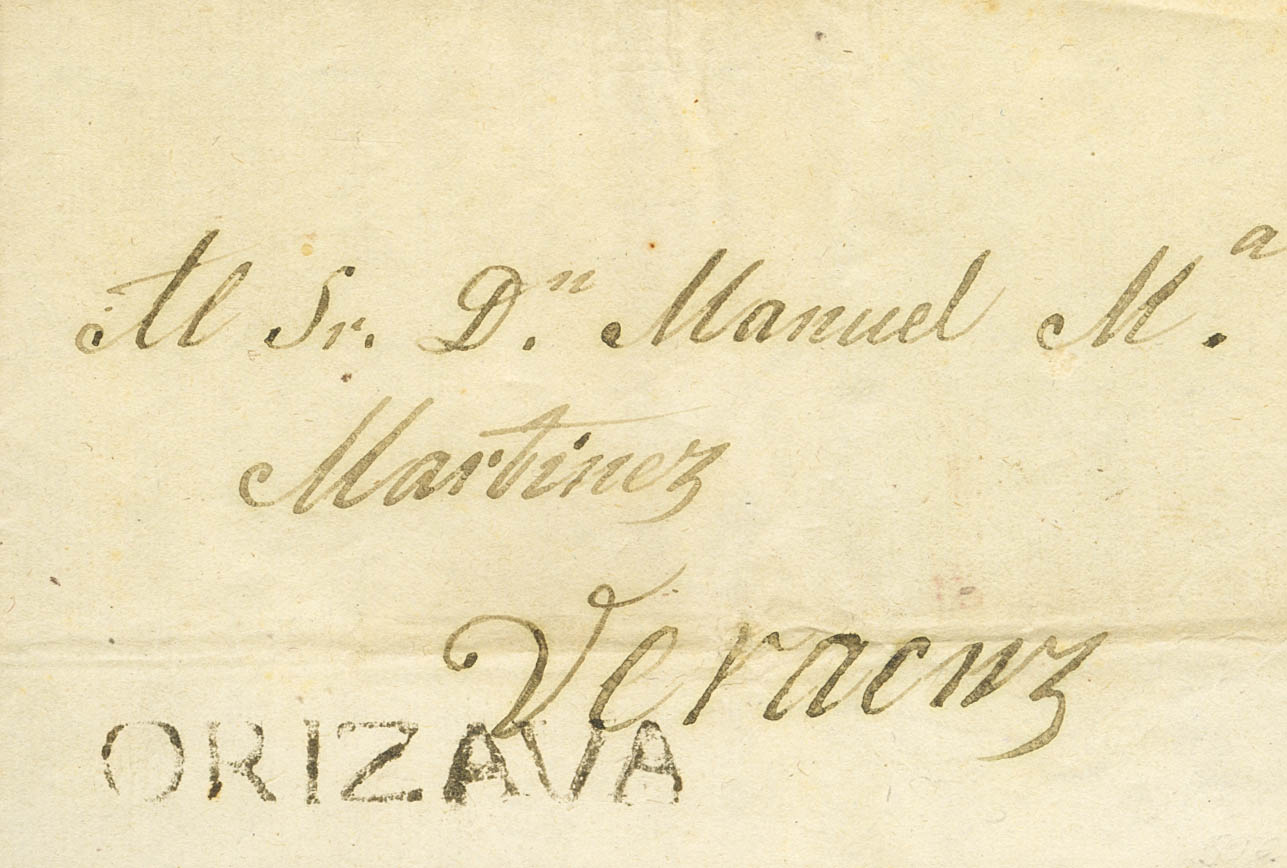 Al Sr. Dⁿ. Manuel Mᵃ.
Martinez
Veracruz
ORIZAVA